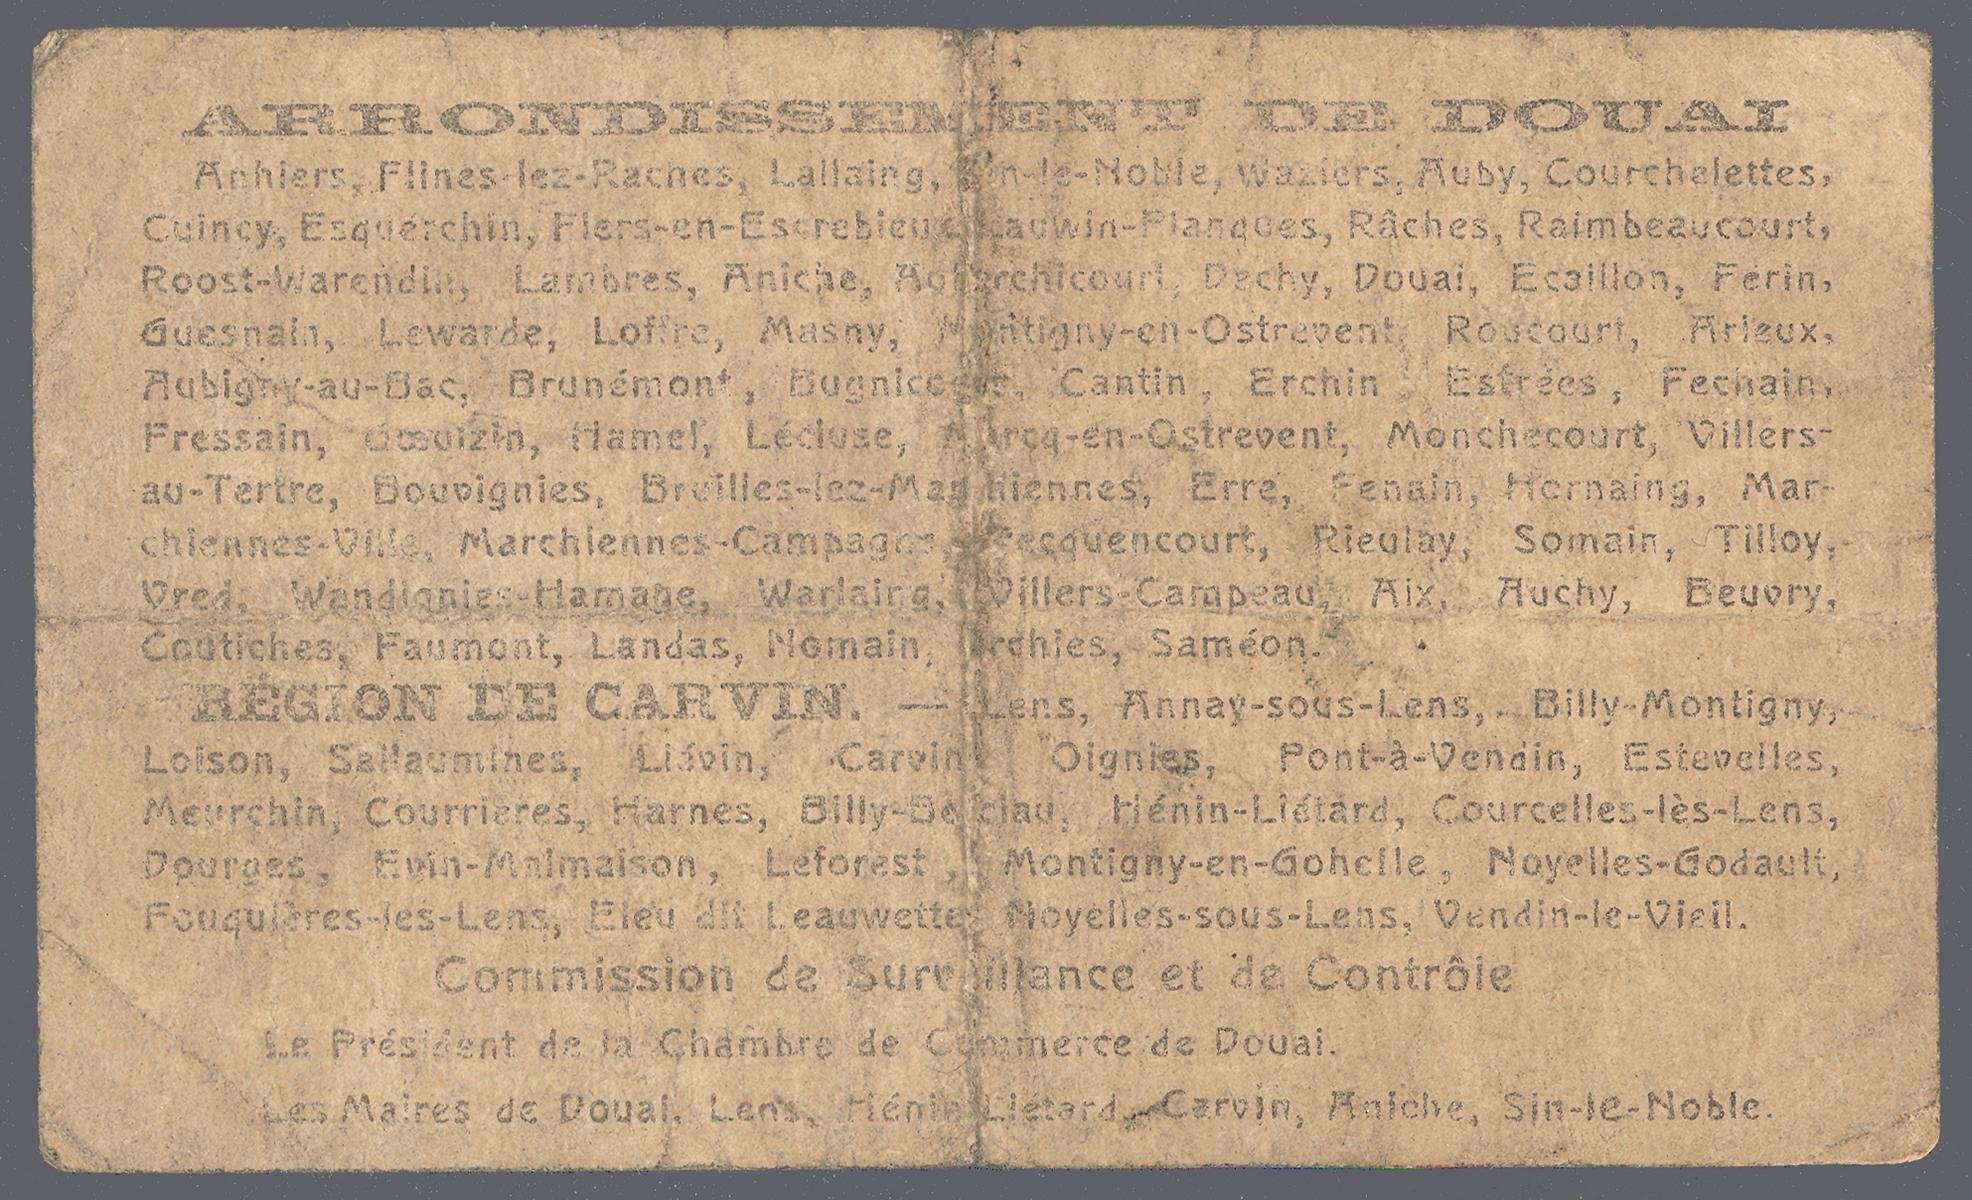 ARRONDISSEMENT DE DOUAI
Anhiers, Flines-lez-Raches, Lallaing, Sin-le-Noble, Waziers, Auby, Courchelettes,
Cuincy, Esquerchin, Flers-en-Escrebieux, Lauwin-Planques, Râches, Raimbeaucourt,
Roost-Warendin, Lambres, Aniche, Auberchicourt, Dechy, Douai, Ecaillon, Ferin,
Guesnain, Lewarde, Loffre, Masny, Montigny-en-Ostrevent, Roucourt, Arleux,
Aubigny-au-Bac, Brunémont, Bugnicourt, Cantin, Erchin, Estrées, Fechain,
Fressain, Gœulzin, Hamel, Lécluse, Marcq-en-Ostrevent, Monchecourt, Villers-
au-Tertre, Bouvignies, Bruilles-lez-Marchiennes, Erre, Fenain, Hornaing, Mar-
chiennes-Ville, Marchiennes-Campagne, Pecquencourt, Rieulay, Somain, Tilloy,
Vred, Wandignies-Hamage, Warlaing, Villers-Campeau, Aix, Auchy, Beuvry,
Coutiches, Faumont, Landas, Nomain, Orchies, Saméon.
RÉGION DE CARVIN. — Lens, Annay-sous-Lens, Billy-Montigny,
Loison, Sallaumines, Liévin, Carvin, Oignies, Pont-à-Vendin, Estevelles,
Meurchin, Courrières, Harnes, Billy-Berclau, Hénin-Liétard, Courcelles-lès-Lens,
Dourges, Evin-Malmaison, Leforest, Montigny-en-Gohelle, Noyelles-Godault,
Fouquières-les-Lens, Eleu dit Leauwette, Noyelles-sous-Lens, Vendin-le-Vieil.
Commission de Surveillance et de Contrôle
Le Président de la Chambre de Commerce de Douai.
Les Maires de Douai, Lens, Hénin-Liétard, Carvin, Aniche, Sin-le-Noble.